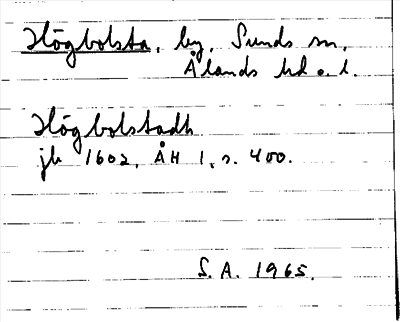 Högbolsta, by, Sunds sn,
Ålands hd o. l.
Högbolstadh
jb 1602, ÅH 1, s. 400.
S. A. 1965.